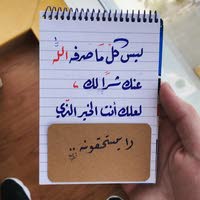 ليس كل ما صرفه الله
عنك شرًا لك ،
لعلك أنت الخير الذي
لا يستحقونه ..